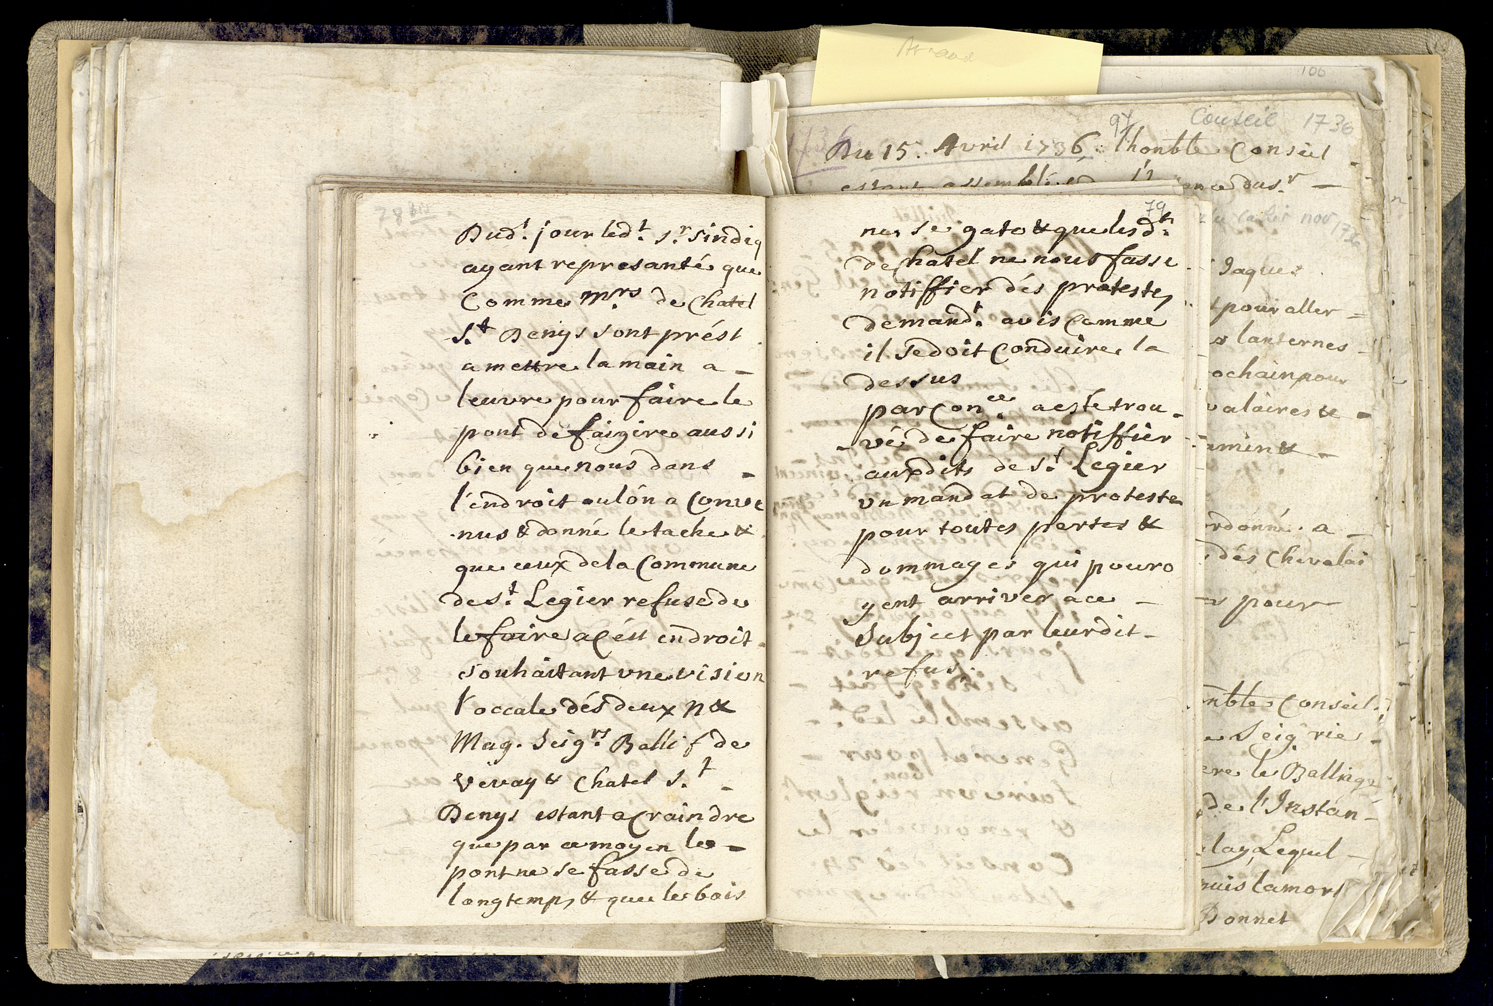 78 bis
Dud.t jour led.t s.r sindiq
ayant represanté que
Comme mrs de Chatel
s.t Denys sont prést
a mettre la main a -
leuvre pour faire le
pont de faigire aussi
bien que nous dans -
l'endroit ou lón a Conve
nus & donné le tache &
que ceux de la Commune
de s.t Legier refuse de
le faire a Cést endroit -
souhaitant une vision
l'occale dés deux n &
Mag. Seig.rs Ballif de
vévay & Chatel s.t -
Denys estant a Craindre
que par ce moyen le -
pont ne se fasse de
longtemps & que les bois
79
nes se gate & que lesd.ts
de Chatel ne nous fasse
notiffier dés protestes
demand.t avis Comme
il se doit Conduire la
dessus
par Con.ce a este trou -
vé de faire notiffier
auxdits de s.t Legier
un mandat de proteste
pour toutes pertes &
dommages qui pouro
yent arriver a ce -
Subject par leurdit -
refus.
100
97
Conseil 1736
Du 15. Avril 1736. lhonble Conseil -
estant assemblé
Jaques
pour aller -
lanternes -
ochain pour
valaires & -
ordonné. a -
dés Chevalai
pour
nble Conseil.
Seig.rie -
le Ballinge
de l'Instan -
Lequel -
puis la mort
Bonnet